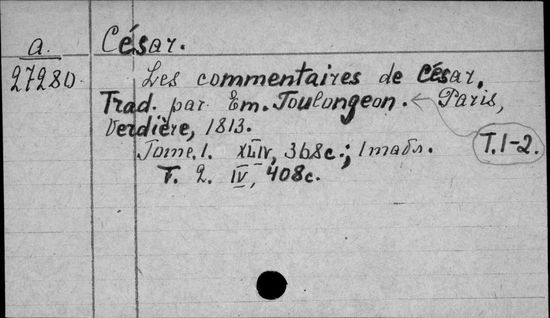 a. César.
27280. Les commentaires de César.
Trad. par Em. Toulongeon. Paris,
Verdière, 1813.
T. 1-2.
Tome. 1. XLIV, 368c.;
T. 2. IV, 408c.